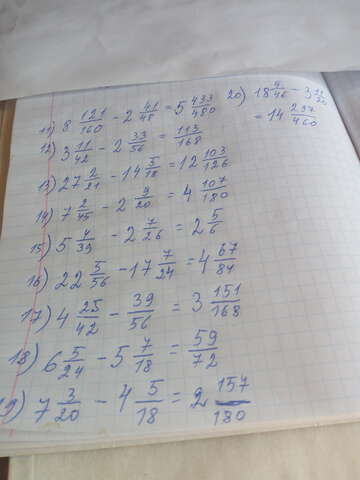 11) 8 121/160 - 2 41/48 = 5 433/480
12) 3 11/42 - 2 33/56 = 113/168
13) 27 2/21 - 14 5/18 = 12 103/126
14) 7 2/45 - 2 9/20 = 4 107/180
15) 5 4/39 - 2 7/26 = 2 5/6
16) 22 5/56 - 17 7/24 = 4 67/84
17) 4 25/42 - 39/56 = 3 151/168
18) 6 5/24 - 5 7/18 = 59/72
9) 7 3/20 - 4 5/18 = 2 157/180
20) 18 /46 - 3 11/20
= 14 237/460